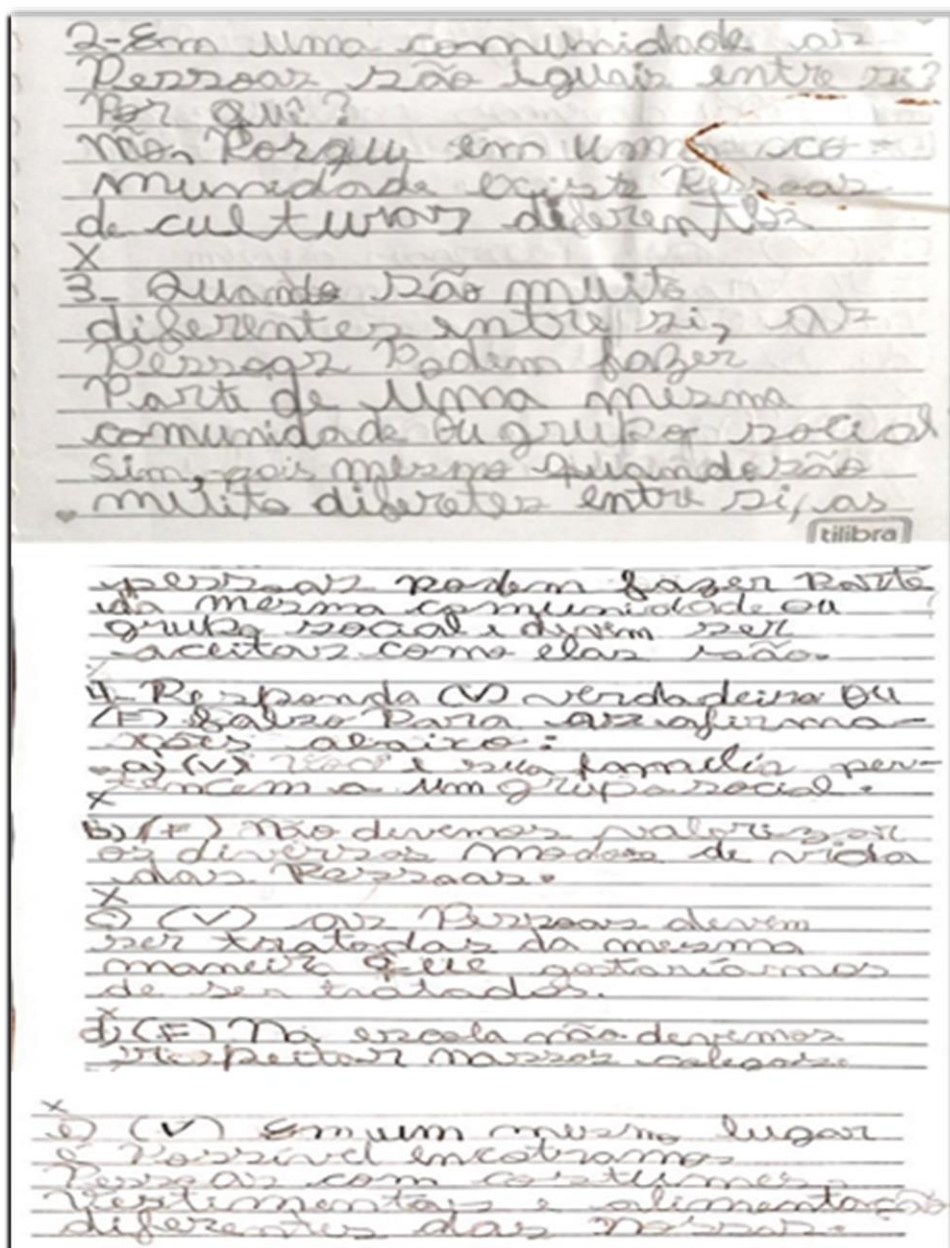 2-Em uma comunidade as
Pessoas são iguais entre si?
Por quê?
não, Porque em uma co-
munidade existe Pessoas
de culturas diferentes
X
3- Quando são muito
diferentes entre si, as
Pessoas Podem fazer
Parte de uma mesma
comunidade ou grupo social
Sim, pois mesmo quando são
muito diferetes entre si, as
tilibra
pessoas podem fazer parte
da mesma comunidade ou
grupo social e devem ser
aceitas como elas são.
4- Responda (V) verdadeiro ou
(F) falso Para as afirma-
ções abaixo:
a) (V) você e sua família per-
tencem a um grupo social.
X
b) (F) Não devemos valorizar
os diversos modos de vida
das Pessoas.
X
c) (V) as Pessoas devem
ser tratadas da mesma
maneira que gostaríamos
de ser tratados.
X
d) (F) Na escola não devemos
respeitar nossos colegas.
X
e) (V) Em um mesmo lugar
é Possível encotramos
Pessoas com costumes,
Vestimentas e alimentação
diferentes das nossas.